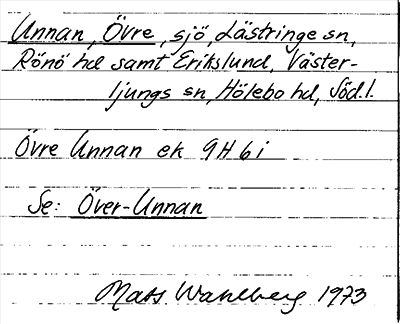 Unnan, Övre, sjö, Lästringe sn,
Rönö hd samt Erikslund, Väster-
ljungs sn, Hölebo hd, Söd.l.
Övre Unnan ek 9H 6i
Se: Över-Unnan
Mats Wahlberg 1973